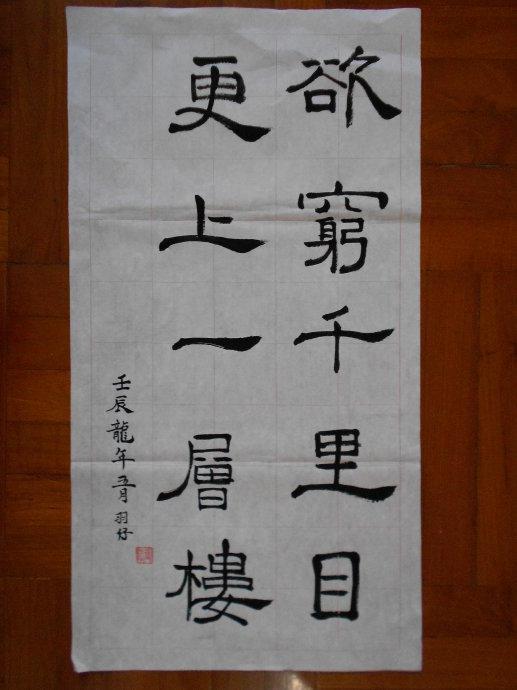 欲窮千里目
更上一層樓
壬辰龍年五月羽仔